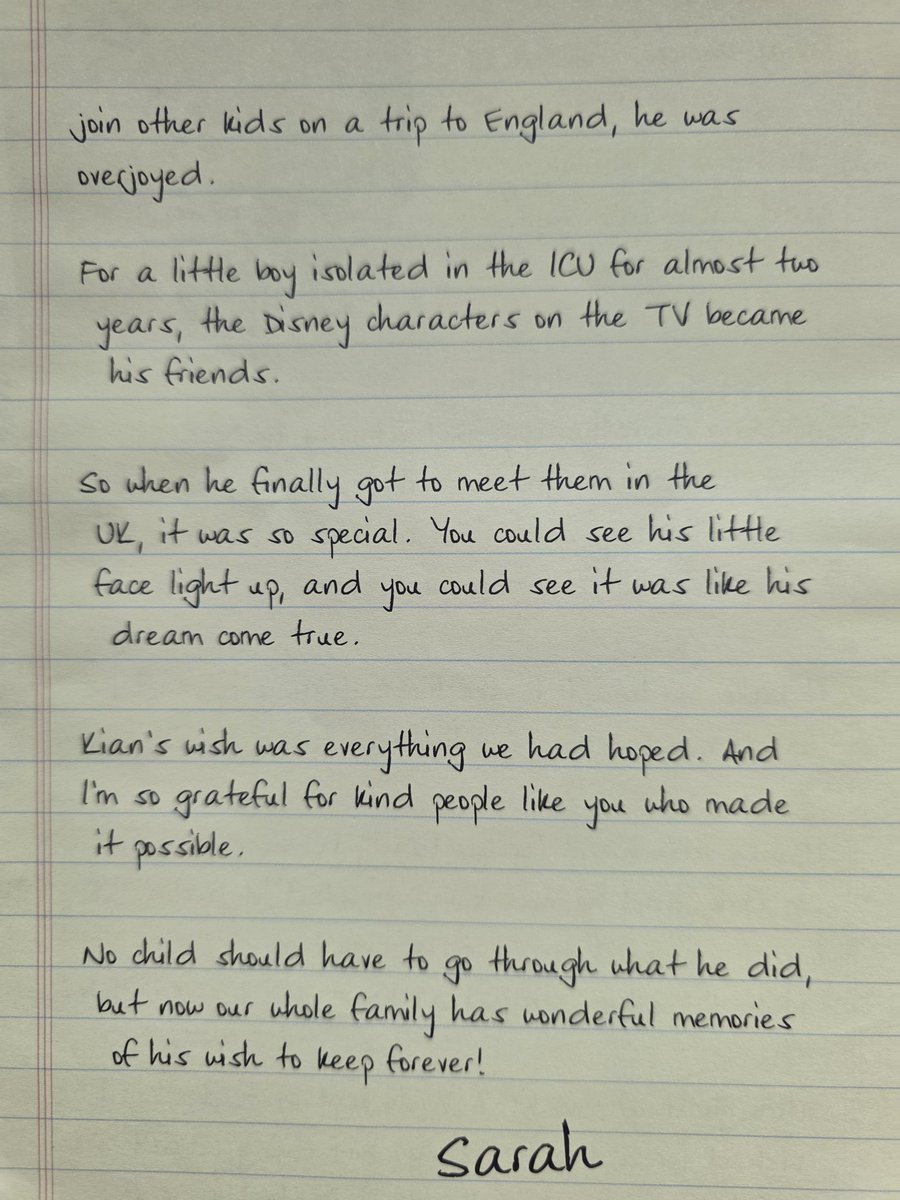 join other kids on a trip to England, he was
overjoyed.
For a little boy isolated in the ICU for almost two
years, the Disney characters on the TV became
his friends.
So when he finally got to meet them in the
UK, it was so special. You could see his little
face light up, and you could see it was like his
dream come true.
Kian's wish was everything we had hoped. And
I'm so grateful for kind people like you who made
it possible.
No child should have to go through what he did,
but now our whole family has wonderful memories
of his wish to keep forever!
Sarah